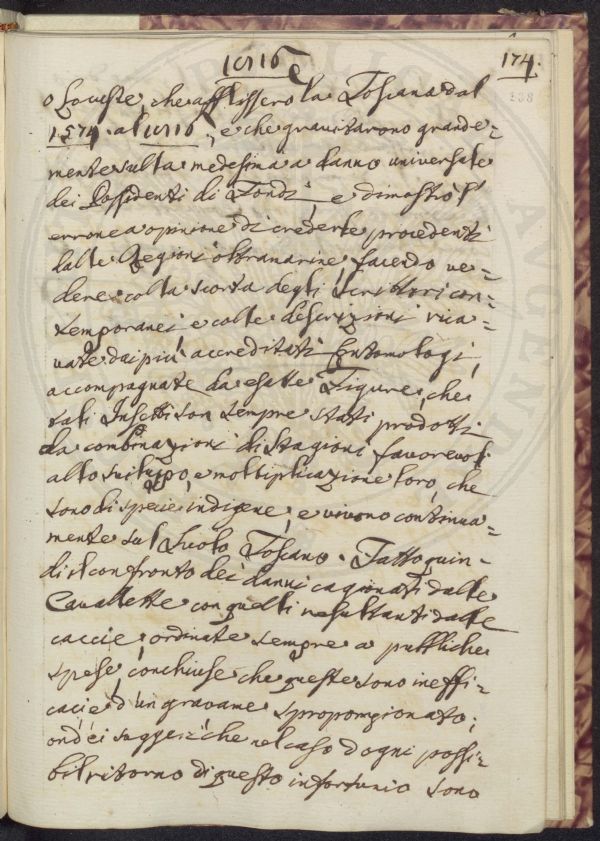 1816
174.
238
o Locuste, che afflissero la Toscana dal
1574. al 1816, e che gravitarono grande=
mente sulla medesima a danno universale
dei Possidenti di Fondi, e dimostrò l'
erronea opinione di crederle procedenti
dalle Regioni oltramarine, facendo ve=
dere colla scorta degli Scrittori con=
temporanei, e colle descrizioni rica=
vate dai più accreditati Entomologi,
accompagnate da esatte Figure, che
tali Insetti son sempre stati prodotti
da combinazioni di stagioni favorevoli
allo sviluppo, e moltiplicazione loro, che
sono di specie indigene, e vivono continua=
mente sul Suolo Toscano. Fatto quin=
di il confronto dei danni cagionati dalle
Cavallette con quelli resultanti dalle
caccie ordinate sempre a pubbliche
spese, conchiuse che queste sono ineffi=
cacie, d'un gravame sproporzionato;
ond'ei suggerì che nel caso d'ogni possi=
bil ritorno di questo infortunio sono